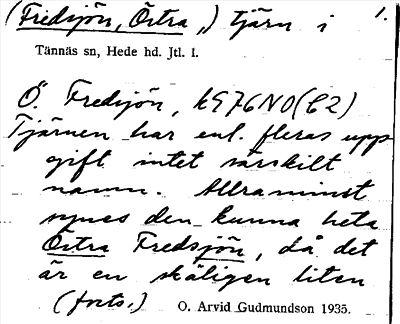 (Fredsjön, Östra,) tjärn i 1.
Tännäs sn, Hede hd. Jtl. l.
Ö. Fredsjön, k976NO(C2)
Tjärnen har enl. fleras upp
gift intet särskilt
namn. Allraminst
synes den kunna heta
Östra Fredsjön, då det
är en skäligen liten
(forts.) O. Arvid Gudmundson 1935.